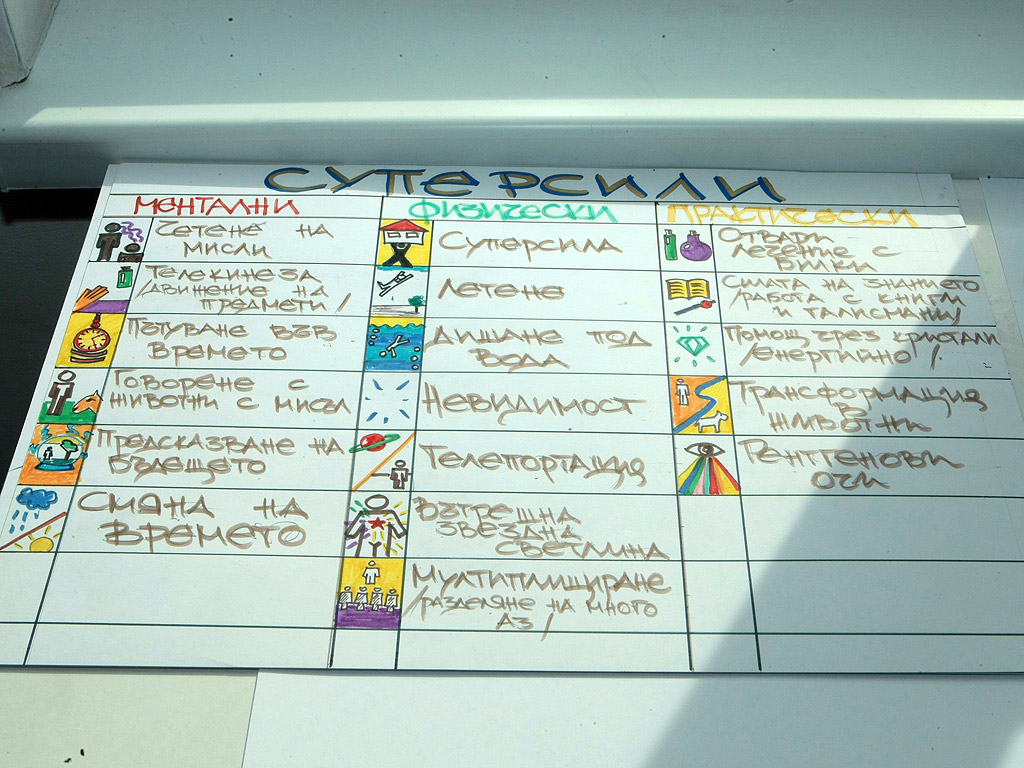 СУПЕРСИЛИ
МЕНТАЛНИ
ЧЕТЕНЕ НА
МИСЛИ
ТЕЛЕКИНЕЗА
/ДВИЖЕНИЕ НА
ПРЕДМЕТИ/
ПЪТУВАНЕ ВЪВ
ВРЕМЕТО
ГОВОРЕНЕ С
ЖИВОТНИ С МИСЪЛ
ПРЕДСКАЗВАНЕ НА
БЪДЕЩЕТО
СМЯНА НА
ВРЕМЕТО
ФИЗИЧЕСКИ
СУПЕРСИЛА
ЛЕТЕНЕ
ДИШАНЕ ПОД
ВОДА
НЕВИДИМОСТ
ТЕЛЕПОРТАЦИЯ
ВЪТРЕШНА
ЗВЕЗДНА
СВЕТЛИНА
МУЛТИПЛИЦИРАНЕ
/РАЗДЕЛЯНЕ НА МНОГО
АЗ/
ПРАКТИЧЕСКИ
ОТВАРИ
ЛЕЧЕНИЕ С
БИЛКИ
СИЛАТА НА ЗНАНИЕТО
/РАБОТА С КНИГИ
И ТАЛИСМАНИ/
ПОМОЩ ЧРЕЗ КРИСТАЛИ
/ЕНЕРГИЙНО/
ТРАНСФОРМАЦИЯ
В
ЖИВОТНИ
РЕНТГЕНОВИ
ОЧИ